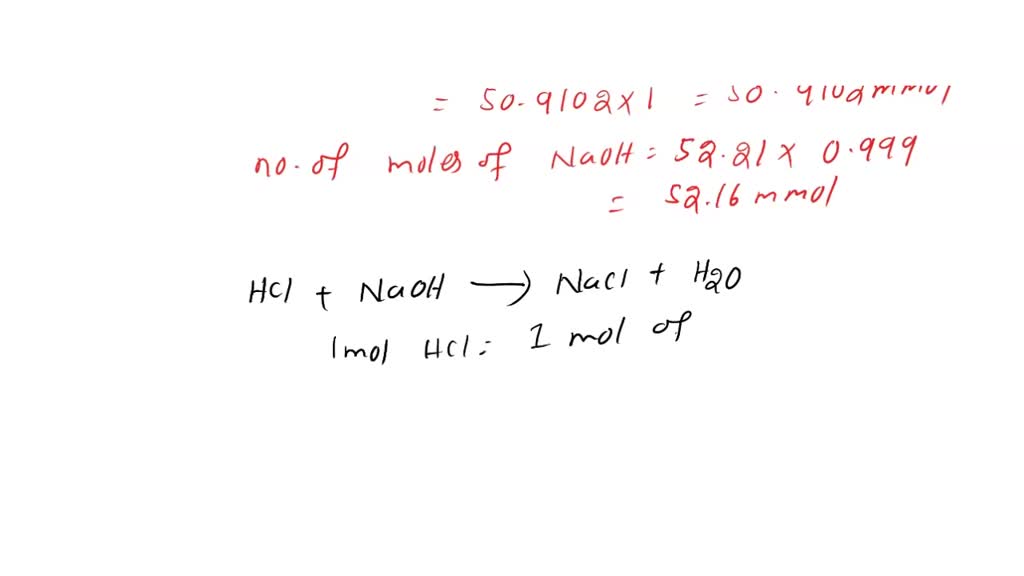 = 50.9102 x 1 = 50.9102 mmol
no. of moles of NaOH = 52.21 x 0.999
= 52.16 mmol
HCl + NaOH → NaCl + H2O
1mol HCl = 1 mol of